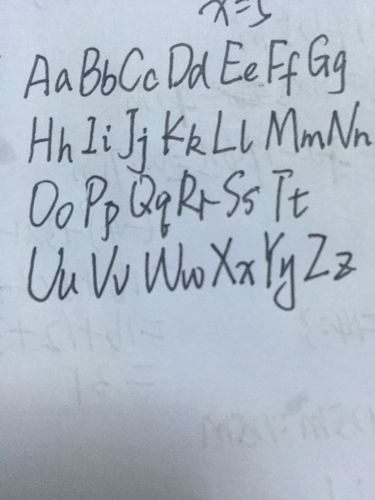 x=5
Aa Bb Cc Dd Ee Ff Gg
Hh Ii Jj Kk Ll Mm Nn
Oo Pp Qq Rr Ss Tt
Uu Vv Ww Xx Yy Zz